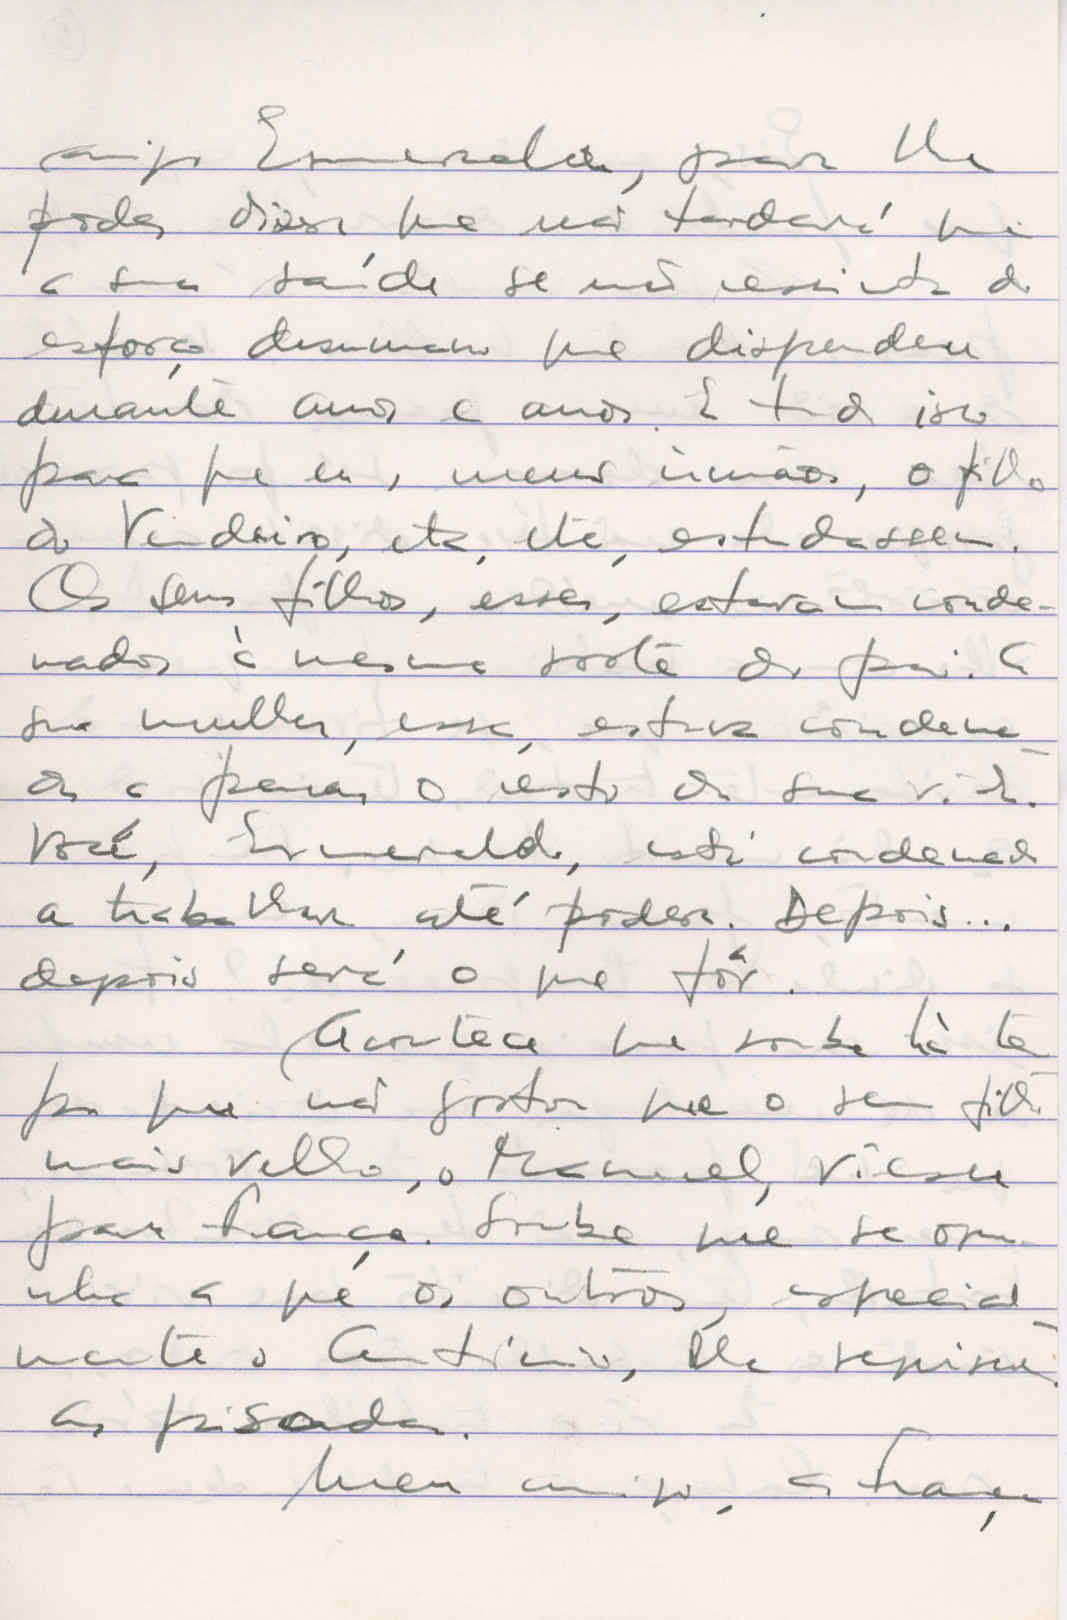 amigo Esmeraldo, para lhe
poder dizer que não tardará que
a sua saúde se não ressinta do
esforço desumano que dispendeu
durante anos e anos. E tudo isso
para que eu, meus irmãos, o filho
do Vendeiro, etc, etc, estudassem.
Os seus filhos, esses, estavam conde-
nados à mesma sorte do pai. A
sua mulher, essa, estava condena
da a penar o resto da sua vida.
Você, Esmeraldo, está condenado
a trabalhar até poder. Depois...
depois será o que fôr.
Acontece que soube há tem
po que não gostou que o seu filho
mais velho, o Manuel, viesse
para França. Soube que se opu-
nha a que os outros, especial
mente o António, lhe seguissem
as pisadas.
Meu amigo, a França